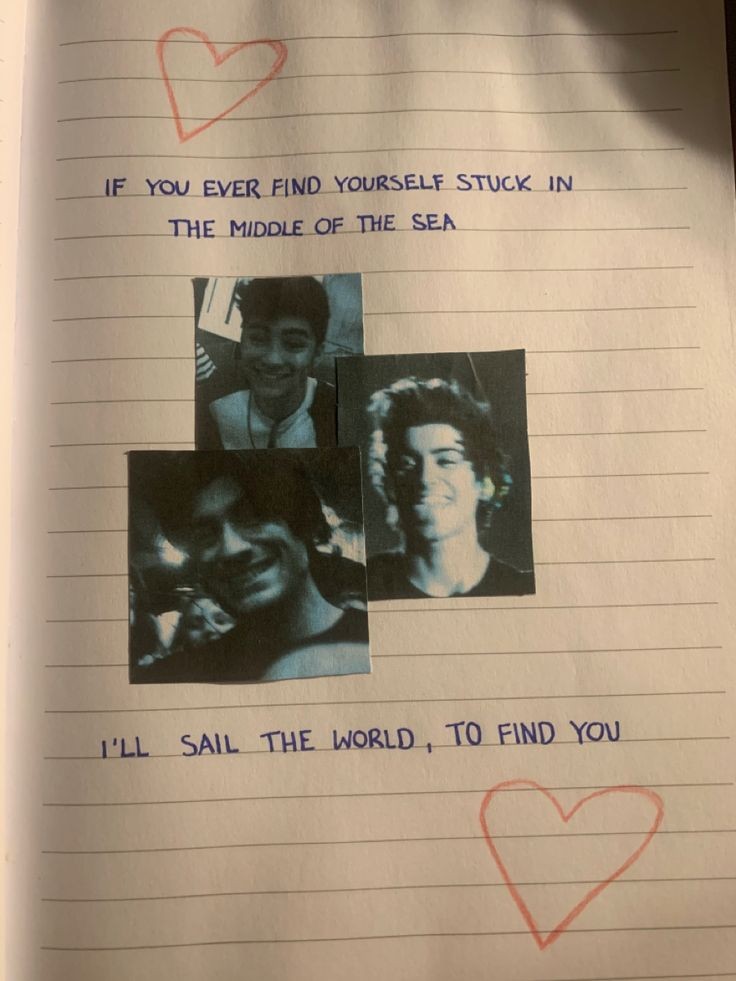 IF YOU EVER FIND YOURSELF STUCK IN
THE MIDDLE OF THE SEA
I'LL SAIL THE WORLD, TO FIND YOU